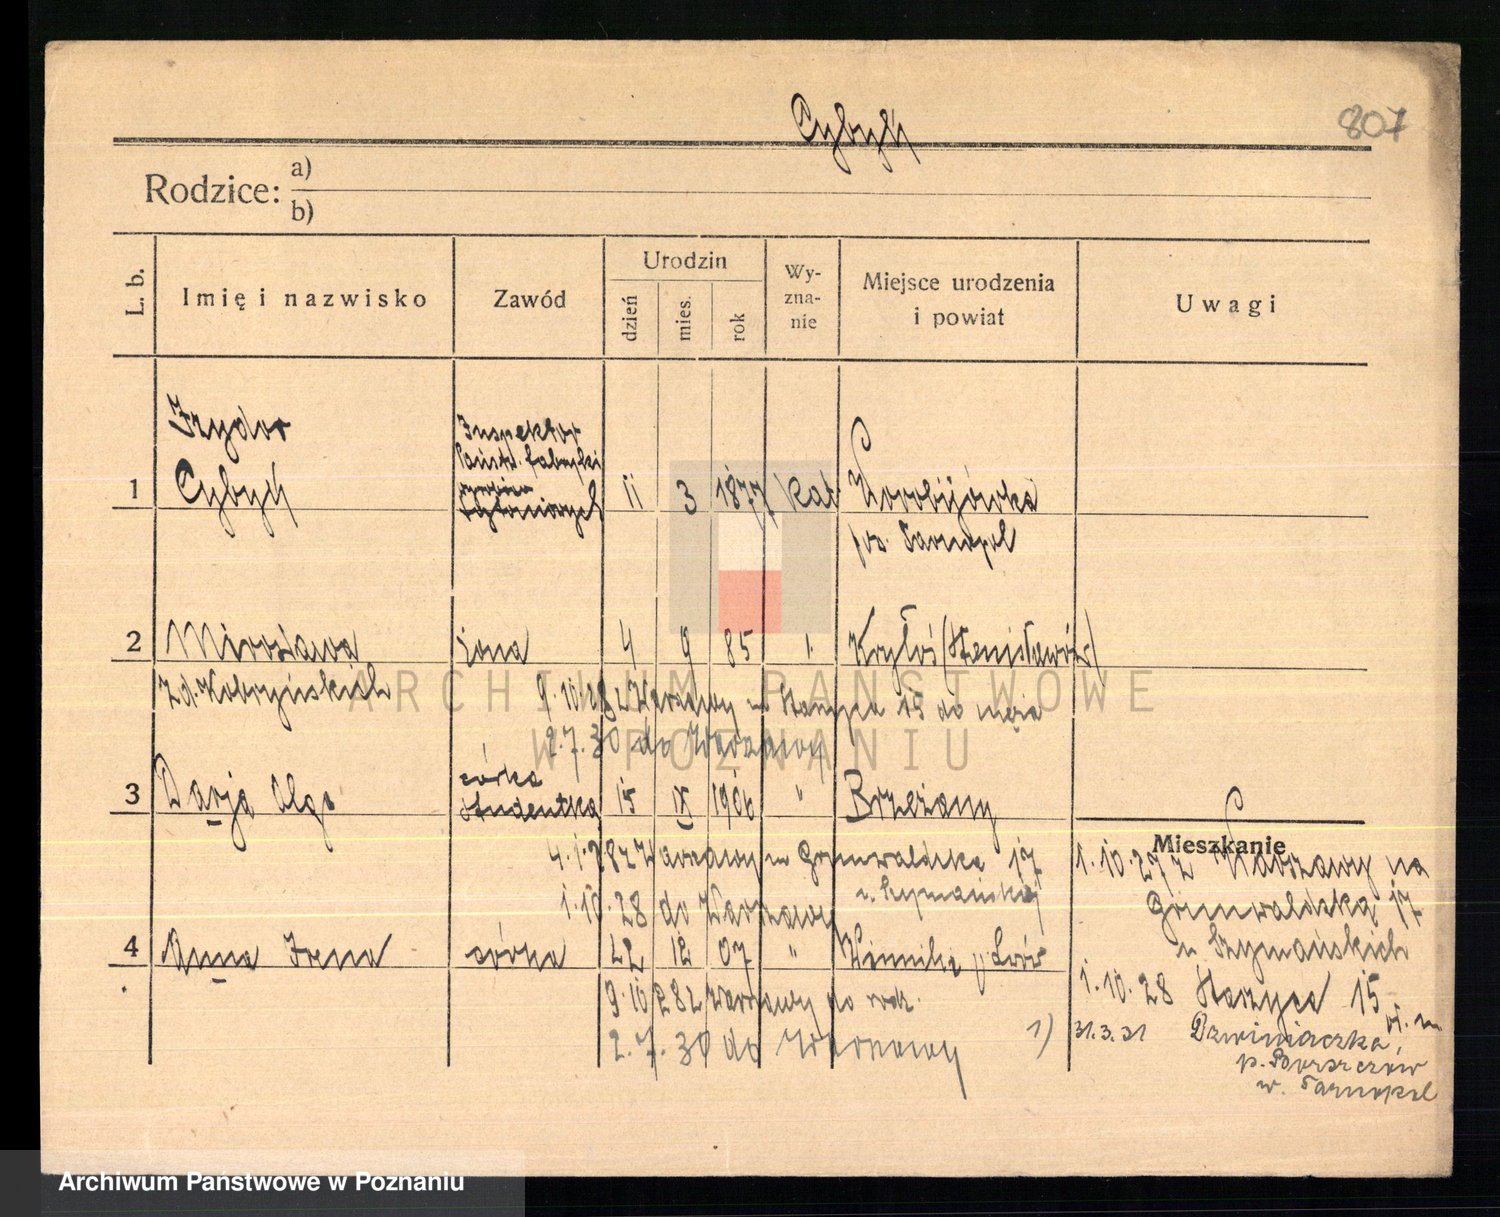 Cybyk
807
Rodzice:
a)
b)
L. b.
Imię i nazwisko
Zawód
Urodzin
dzień
mies.
rok
Wy-
zna-
nie
Miejsce urodzenia
i powiat
Uwagi
Izydor
Inspektor
Państw. fabryki
1 Cybyk
tytoniowych 11 3 1877 kat
pow. Tarnopol
2 Mirosława żona 4 9 85 Kryłoś (Stanisławów)
z d. Kobryńskich
9.10.28 z Warszawy
15 do męża
2.7.30 do Warszawy
córka
3 Darja Olga studentka 15 IX 1906 " Brzeżany
Mieszkanie
4.1.28 z Warszawy Grunwaldzka 17
u Szymańskiej
1.10.28 do Warszawy
1.10.27 z Warszawy na
Grunwaldzką 17
u Szymańskich
4 Anna Irena córka 22 12 07 " Winniki p. Lwów
1.10.28 15
9.10.28 z Warszawy do rodz.
2.7.30 do Warszawy
1) 31.3.31 Dzwiniaczka,
p. Borszczów
w. Tarnopol
ARCHIWUM PAŃSTWOWE
W POZNANIU
Archiwum Państwowe w Poznaniu